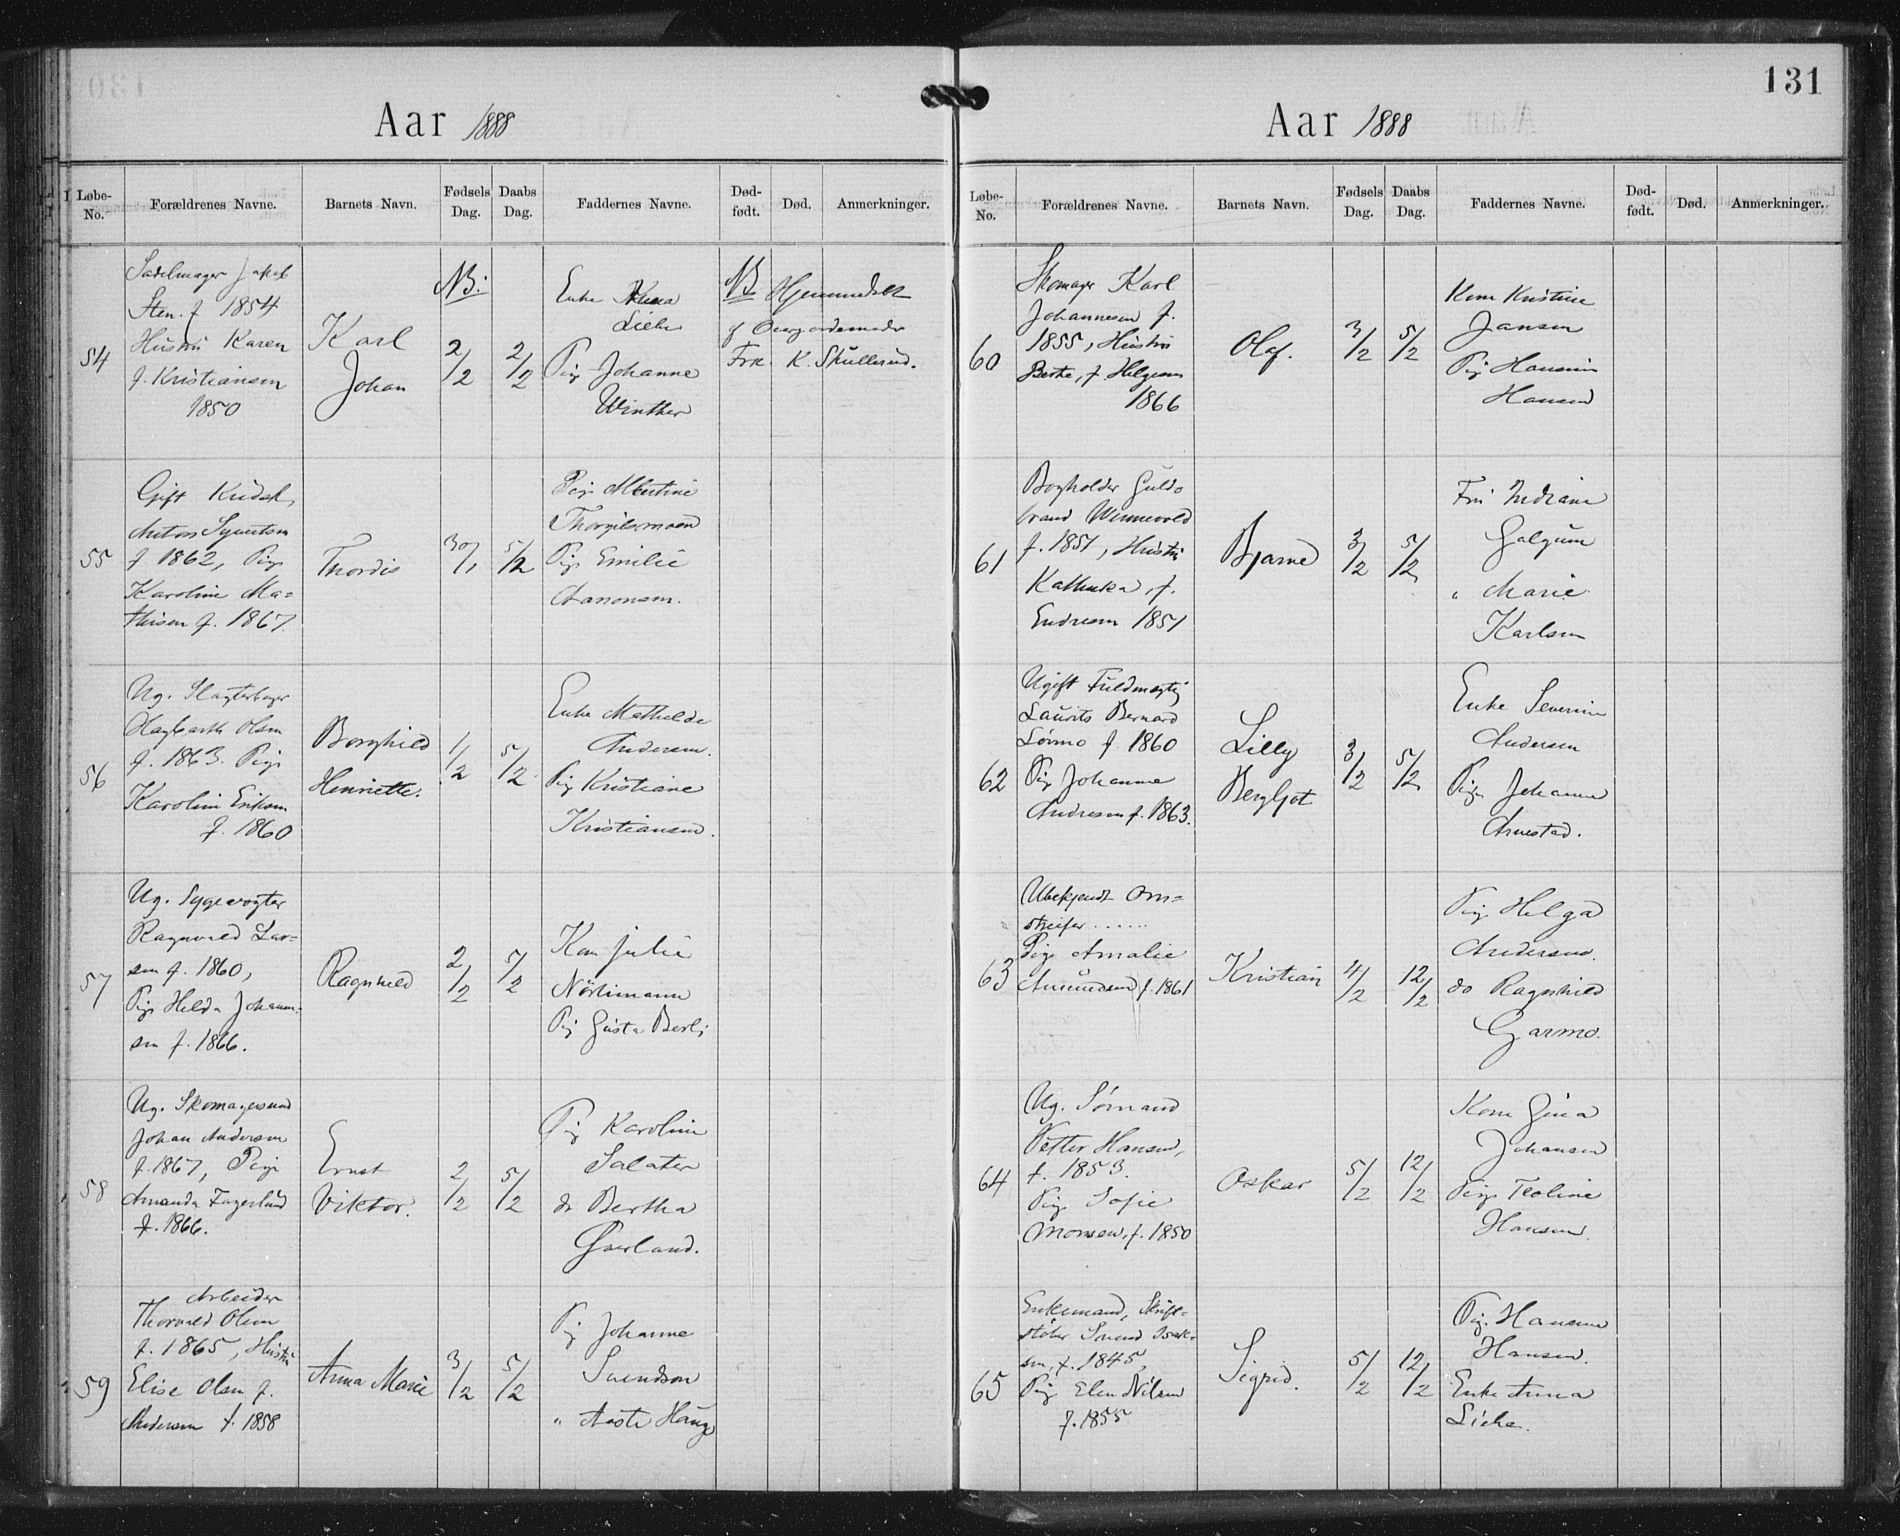 131
Aar 1888
Løbe-No. Forældrenes Navne. Barnets Navn. Fødsels Dag. Daabs Dag. Faddernes Navne. Død-født. Død. Anmerkninger.
54
Sadelmager Jakob
Sten. f. 1854
Hustru Karen
f. Kristiansen
1850
Karl
Johan
NB:
2/2
2/2
Enke Anna
Liebe
Pig Johanne
Winther
NB Hjemmedøbt
af Overjordemoder
Frk. K. Skullerud.
55
Gift Kudsk,
Anton Syvertsen
f 1862, Pige
Karoline Ma=
thisen f. 1867.
Thordis
30/1
5/2
Pige Albertine
Thorgilsmoen
Pige Emilie
Aanonsen.
56
Ug. Slagterborger
Hagbarth Olsen
f. 1863. Pige
Karoline Eriksen
f. 1860
Borghild
Henriette.
1/2
5/2.
Enke Mathilde
Andersen.
Pig Kristiane
Kristiansen.
57
Ug. Sygevogter
Ragnvald Lar=
sen f. 1860,
Pige Hilda Johann=
sen f. 1866.
Ragnhild
2/2
5/2
Kon Julie
Nörtimann
Pig Gusta Berli
58
Ug. Skomagersvend
Johan Andersen
f. 1867, Pige
Amanda Fagerlund
f. 1866.
Ernst
Viktor.
2/2
5/2
Pig Karoline
Salater
do Bertha
Øverland.
59
Arbeider
Thorvald Olsen
f. 1865, Hustru
Elise Olsen f.
Andersen f. 1858
Anna Marie
3/2
5/2
Pig Johanne
Svendsen
" Aaste Hauge
Aar 1888
Løbe-No. Forældrenes Navne. Barnets Navn. Fødsels Dag. Daabs Dag. Faddernes Navne. Død-født. Død. Anmerkninger.
60
Skomager Karl
Johannesen f.
1855, Hustru
Berthe, f. Helgesen
1866
Olaf.
3/2
5/2
Kone Kristine
Jansen
Pig Hansine
Hansen
61
Bogholder Guld=
brand Wennevold
f. 1851, Hustru
Kathinka, f.
Endresen 1851
Bjarne
3/2
5/2
Fru Indiane
Galgum
" Marie
Karlsen
62
Ugift Fuldmægtig
Laurits Bernard
Lörmo f. 1860
Pig Johanne
Andresen f. 1863.
Lilly
Bergljot
3/2
5/2
Enke Severine
Andersen
Pige Johanne
Arnestad.
63
Ubekjendt Om=
streifer ......
Pige Amalie
Amundsen f. 1861
Kristian
4/2
12/2
Pige Helga
Andersen.
do Ragnhild
Garmo.
64
Ug. Sömand
Petter Hansen,
f. 1853.
Pig Sofie
Monsen, f. 1850
Oskar
5/2
12/2
Kone Gina
Johansen
Pige Teoline
Hansen.
65
Enkemand, Skrift=
støber Svend Isak=
sen, f. 1845,
Pig Elen Nilsen
f. 1855
Sigrid.
5/2
12/2
Pig. Hansine
Hansen.
Enke Anna
Liebe.